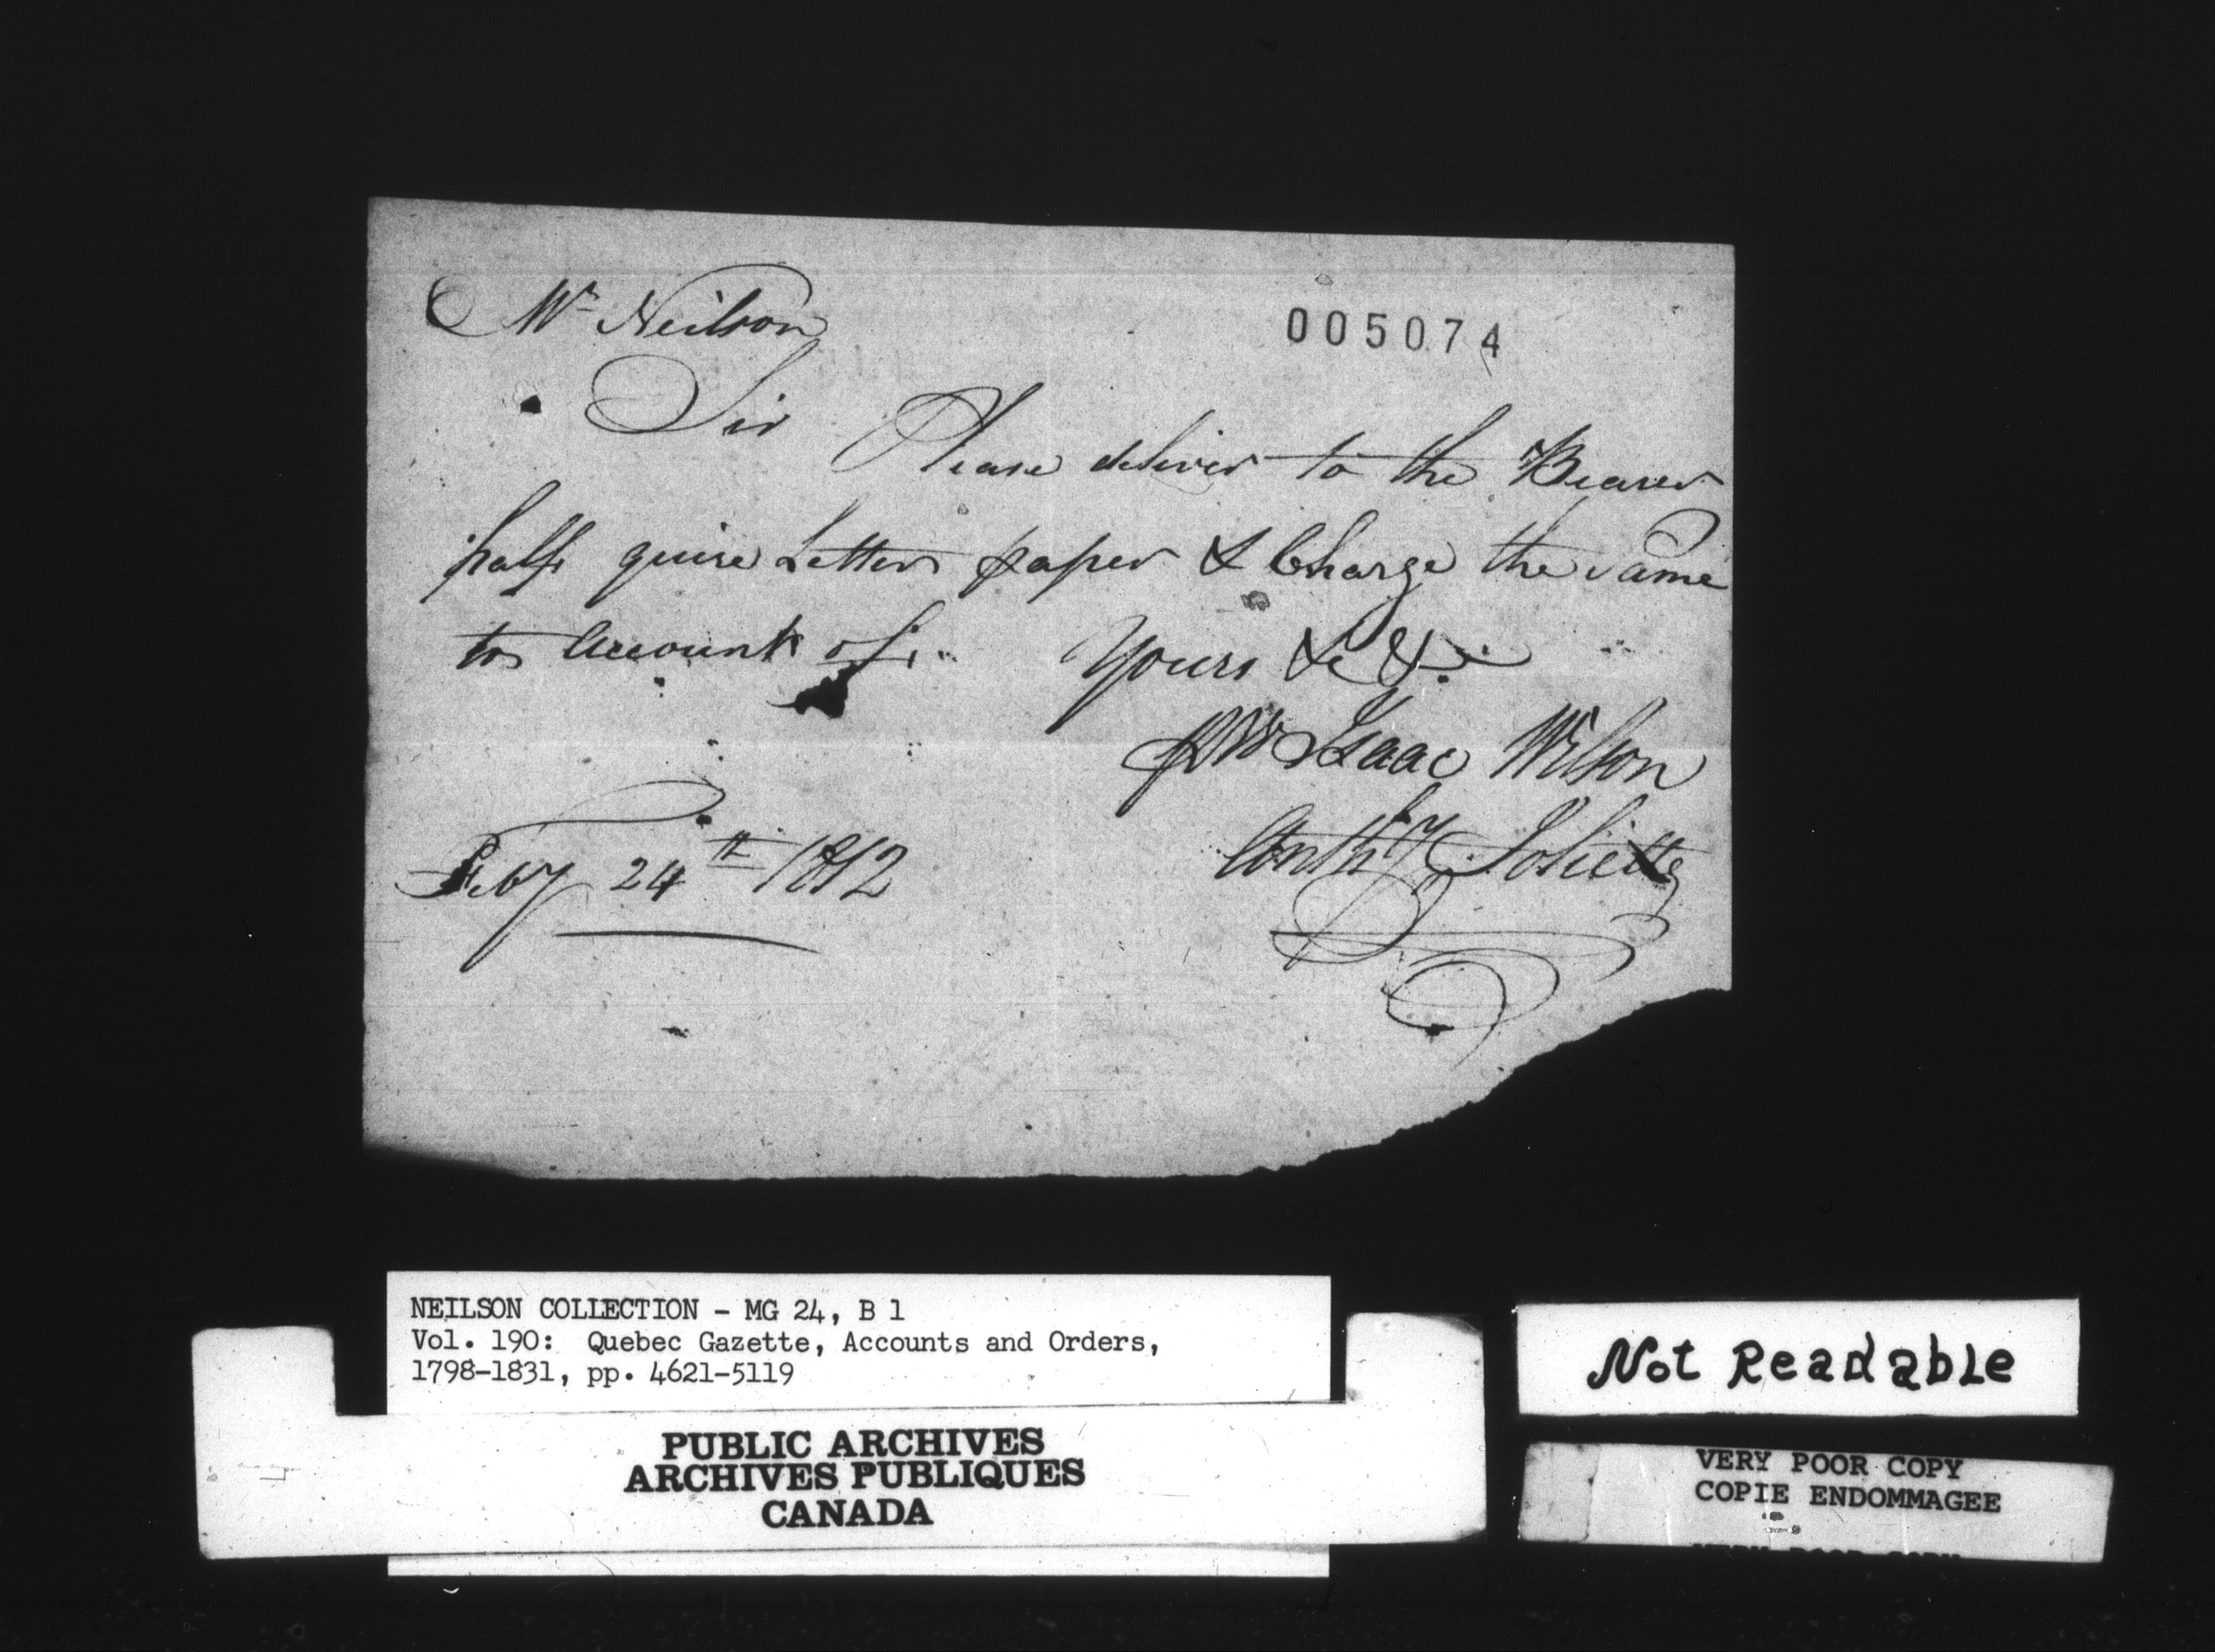 Mr Neilson
005074
Sir Please deliver to the Bearer
half quire Letter paper & Charge the Same
to Account of. Yours &c &c
Isaac Wilson
Feby 24th 1812
Anthy Joliette
NEILSON COLLECTION - MG 24, B 1
Vol. 190: Quebec Gazette, Accounts and Orders,
1798-1831, pp. 4621-5119
PUBLIC ARCHIVES
ARCHIVES PUBLIQUES
CANADA
Not Readable
VERY POOR COPY
COPIE ENDOMMAGEE